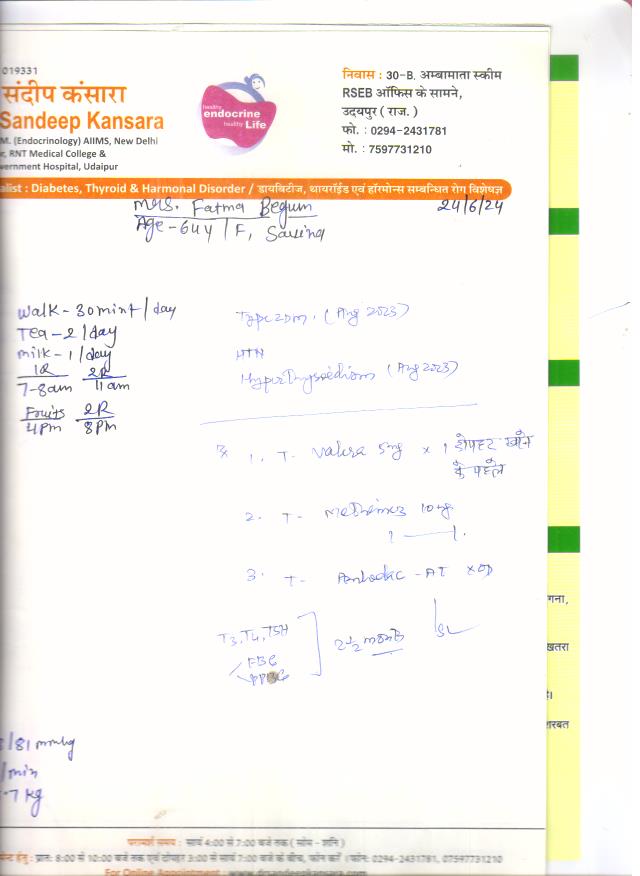 019331
संदीप कंसारा
Sandeep Kansara
M. (Endocrinology) AIIMS, New Delhi
r, RNT Medical College &
vernment Hospital, Udaipur
healthy
endocrine
healthy Life
निवास : 30-B, अम्बामाता स्कीम
RSEB ऑफिस के सामने,
उदयपुर ( राज. )
फो. : 0294-2431781
मो. : 7597731210
alist : Diabetes, Thyroid & Harmonal Disorder / डायबिटीज, थायरॉईड एवं हॉरमोन्स सम्बन्धित रोग विशेषज्ञ
Mrs. Fatma Begum
24/6/24
Age - 64y / F,
Walk - 30 mint / day
Tea - 2 / day
Milk - 1 / day
1R 2R
7-8am 11am
Fruits 2R
4pm 8pm
Type 2 DM. (Aug 2023)
HTN
Hyperthyroidism (Aug 2023)
1. T- 5mg x 1 दोपहर खाने
के पहले
2. T- 10mg
3. T- - AT x OD
T3, T4, TSH
FBG
PPBG
2 1/2 month
/81 mmhg
/min
.7 kg
गना,
खतरा
है।
शरबत
परामर्श समय : सायं 4:00 से 7:00 बजे तक ( सोम - शनि )
हेतु : प्रातः 8:00 से 10:00 बजे तक एवं दोपहर 3:00 से सायं 7:00 बजे के बीच, फोन करें । फोन: 0294-2431781, 07597731210
For Online Appointment : www.drsandeepkansara.com